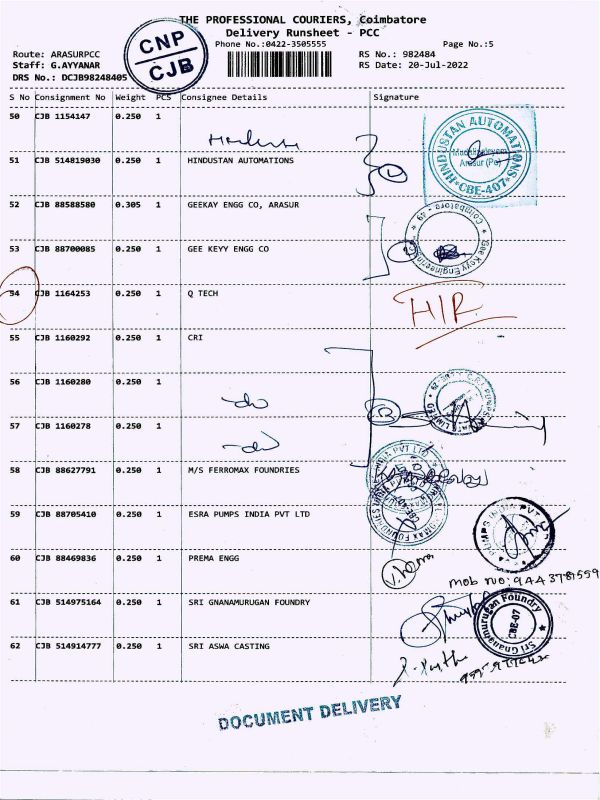 THE PROFESSIONAL COURIERS, Coimbatore
Delivery Runsheet - PCC
Phone No.:0422-3505555 Page No.:5
Route: ARASURPCC
Staff: G.AYYANAR
DRS No.: DCJB98248405
CNP
CJB
RS No.: 982484
RS Date: 20-Jul-2022
S No Consignment No Weight PCS Consignee Details Signature
50 CJB 1154147 0.250 1
51 CJB 514819030 0.250 1 HINDUSTAN AUTOMATIONS
HINDUSTAN AUTOMATIONS
Arasur (Po)
CBE-407
52 CJB 88588580 0.305 1 GEEKAY ENGG CO, ARASUR
53 CJB 88700085 0.250 1 GEE KEYY ENGG CO
Gee Keyy Engineering
Coimbatore - 49
54 CJB 1164253 0.250 1 Q TECH
H/R
55 CJB 1160292 0.250 1 CRI
56 CJB 1160280 0.250 1
57 CJB 1160278 0.250 1
58 CJB 88627791 0.250 1 M/S FERROMAX FOUNDRIES
59 CJB 88705410 0.250 1 ESRA PUMPS INDIA PVT LTD
PUMPS INDIA PVT
60 CJB 88469836 0.250 1 PREMA ENGG
mob no:
61 CJB 514975164 0.250 1 SRI GNANAMURUGAN FOUNDRY
Sri Gnanamurugan Foundry
CBE-07
62 CJB 514914777 0.250 1 SRI ASWA CASTING
DOCUMENT DELIVERY